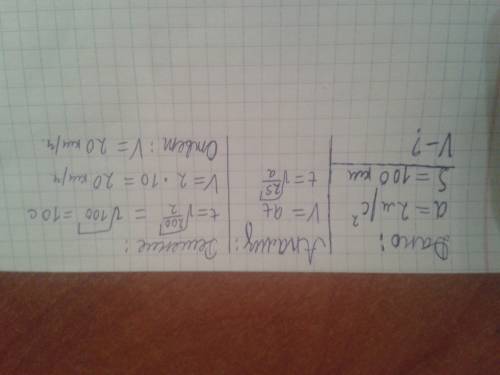 Дано:
a = 2 м/с²
S = 100 км
V - ?
Анализ:
V = at
t = √2S/a
Решение:
t = √200/2 = √100 = 10 с
V = 2 · 10 = 20 км/ч
Ответ: V = 20 км/ч.